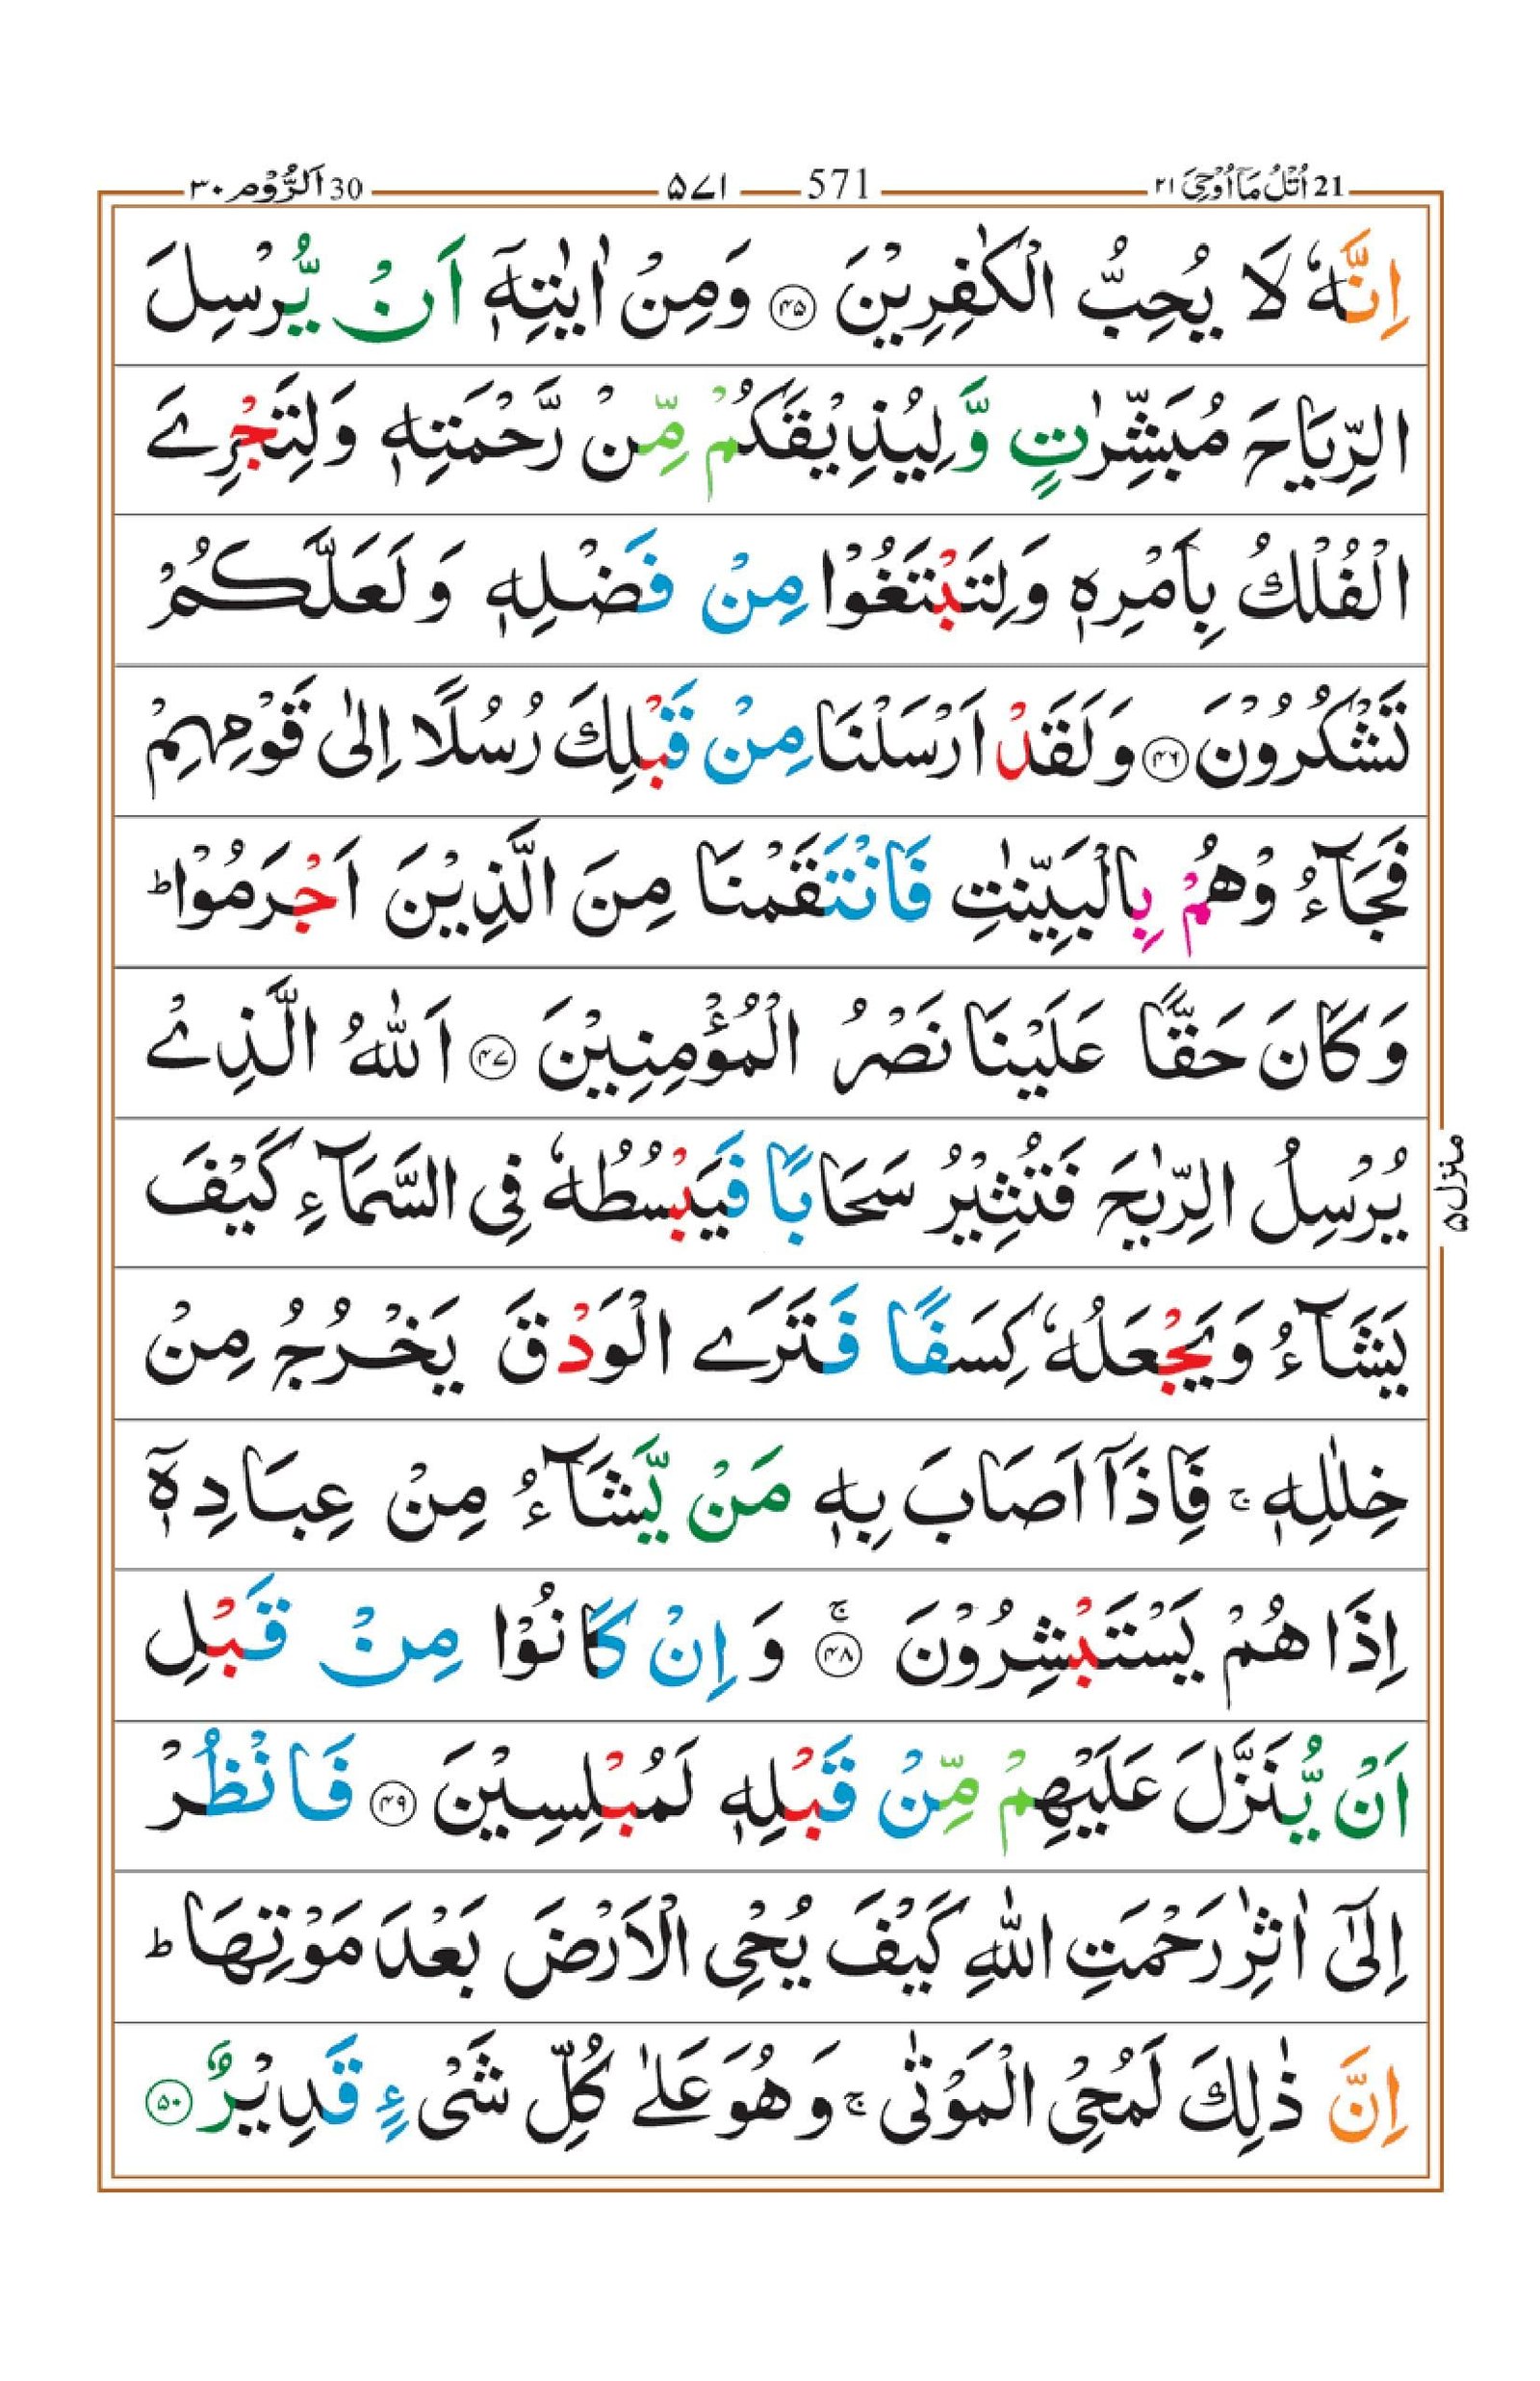 21 اُتْلُ مَاۤ اُوْحِیَ ۲۱ 571 ۵۷۱ 30 اَلرُّوْم ۳۰
اِنَّهٗ لَا یُحِبُّ الْكٰفِرِیْنَ ﴿۴۵﴾ وَمِنْ اٰیٰتِهٖۤ اَنْ یُّرْسِلَ
الرِّیَاحَ مُبَشِّرٰتٍ وَّلِیُذِیْقَكُمْ مِّنْ رَّحْمَتِهٖ وَلِتَجْرِیَ
الْفُلْكُ بِاَمْرِهٖ وَلِتَبْتَغُوْا مِنْ فَضْلِهٖ وَلَعَلَّكُمْ
تَشْكُرُوْنَ ﴿۴۶﴾ وَلَقَدْ اَرْسَلْنَا مِنْ قَبْلِكَ رُسُلًا اِلٰی قَوْمِهِمْ
فَجَآءُوْهُمْ بِالْبَیِّنٰتِ فَانْتَقَمْنَا مِنَ الَّذِیْنَ اَجْرَمُوْا ؕ
وَكَانَ حَقًّا عَلَیْنَا نَصْرُ الْمُؤْمِنِیْنَ ﴿۴۷﴾ اَللّٰهُ الَّذِیْ
یُرْسِلُ الرِّیٰحَ فَتُثِیْرُ سَحَابًا فَیَبْسُطُهٗ فِی السَّمَآءِ كَیْفَ
یَشَآءُ وَیَجْعَلُهٗ كِسَفًا فَتَرَی الْوَدْقَ یَخْرُجُ مِنْ
خِلٰلِهٖ ۚ فَاِذَاۤ اَصَابَ بِهٖ مَنْ یَّشَآءُ مِنْ عِبَادِهٖۤ
اِذَا هُمْ یَسْتَبْشِرُوْنَ ﴿۴۸﴾ۚ وَاِنْ كَانُوْا مِنْ قَبْلِ
اَنْ یُّنَزَّلَ عَلَیْهِمْ مِّنْ قَبْلِهٖ لَمُبْلِسِیْنَ ﴿۴۹﴾ فَانْظُرْ
اِلٰۤی اٰثٰرِ رَحْمَتِ اللّٰهِ كَیْفَ یُحْیِ الْاَرْضَ بَعْدَ مَوْتِهَا ؕ
اِنَّ ذٰلِكَ لَمُحْیِ الْمَوْتٰی ۚ وَهُوَ عَلٰی كُلِّ شَیْءٍ قَدِیْرٌ ﴿۵۰﴾
منزل ۵